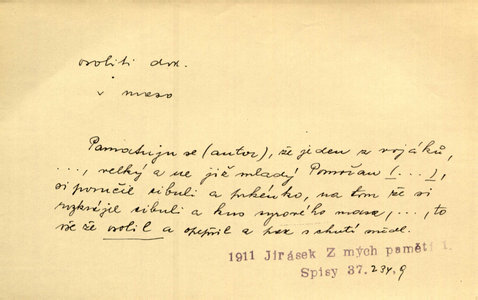 osoliti dok.
v maso
Pamatuju se (autor), že jeden z vojáků,
..., velký a ne již mladý Pomořan [...],
si poručil cibuli a prkénko, na tom že si
rozkrájel cibuli a kus syrového masa, ..., to
vše že osolil a opepřil a pak s chutí snědl.
1911 Jirásek Z mých pamětí I.
Spisy 37. 234, 9